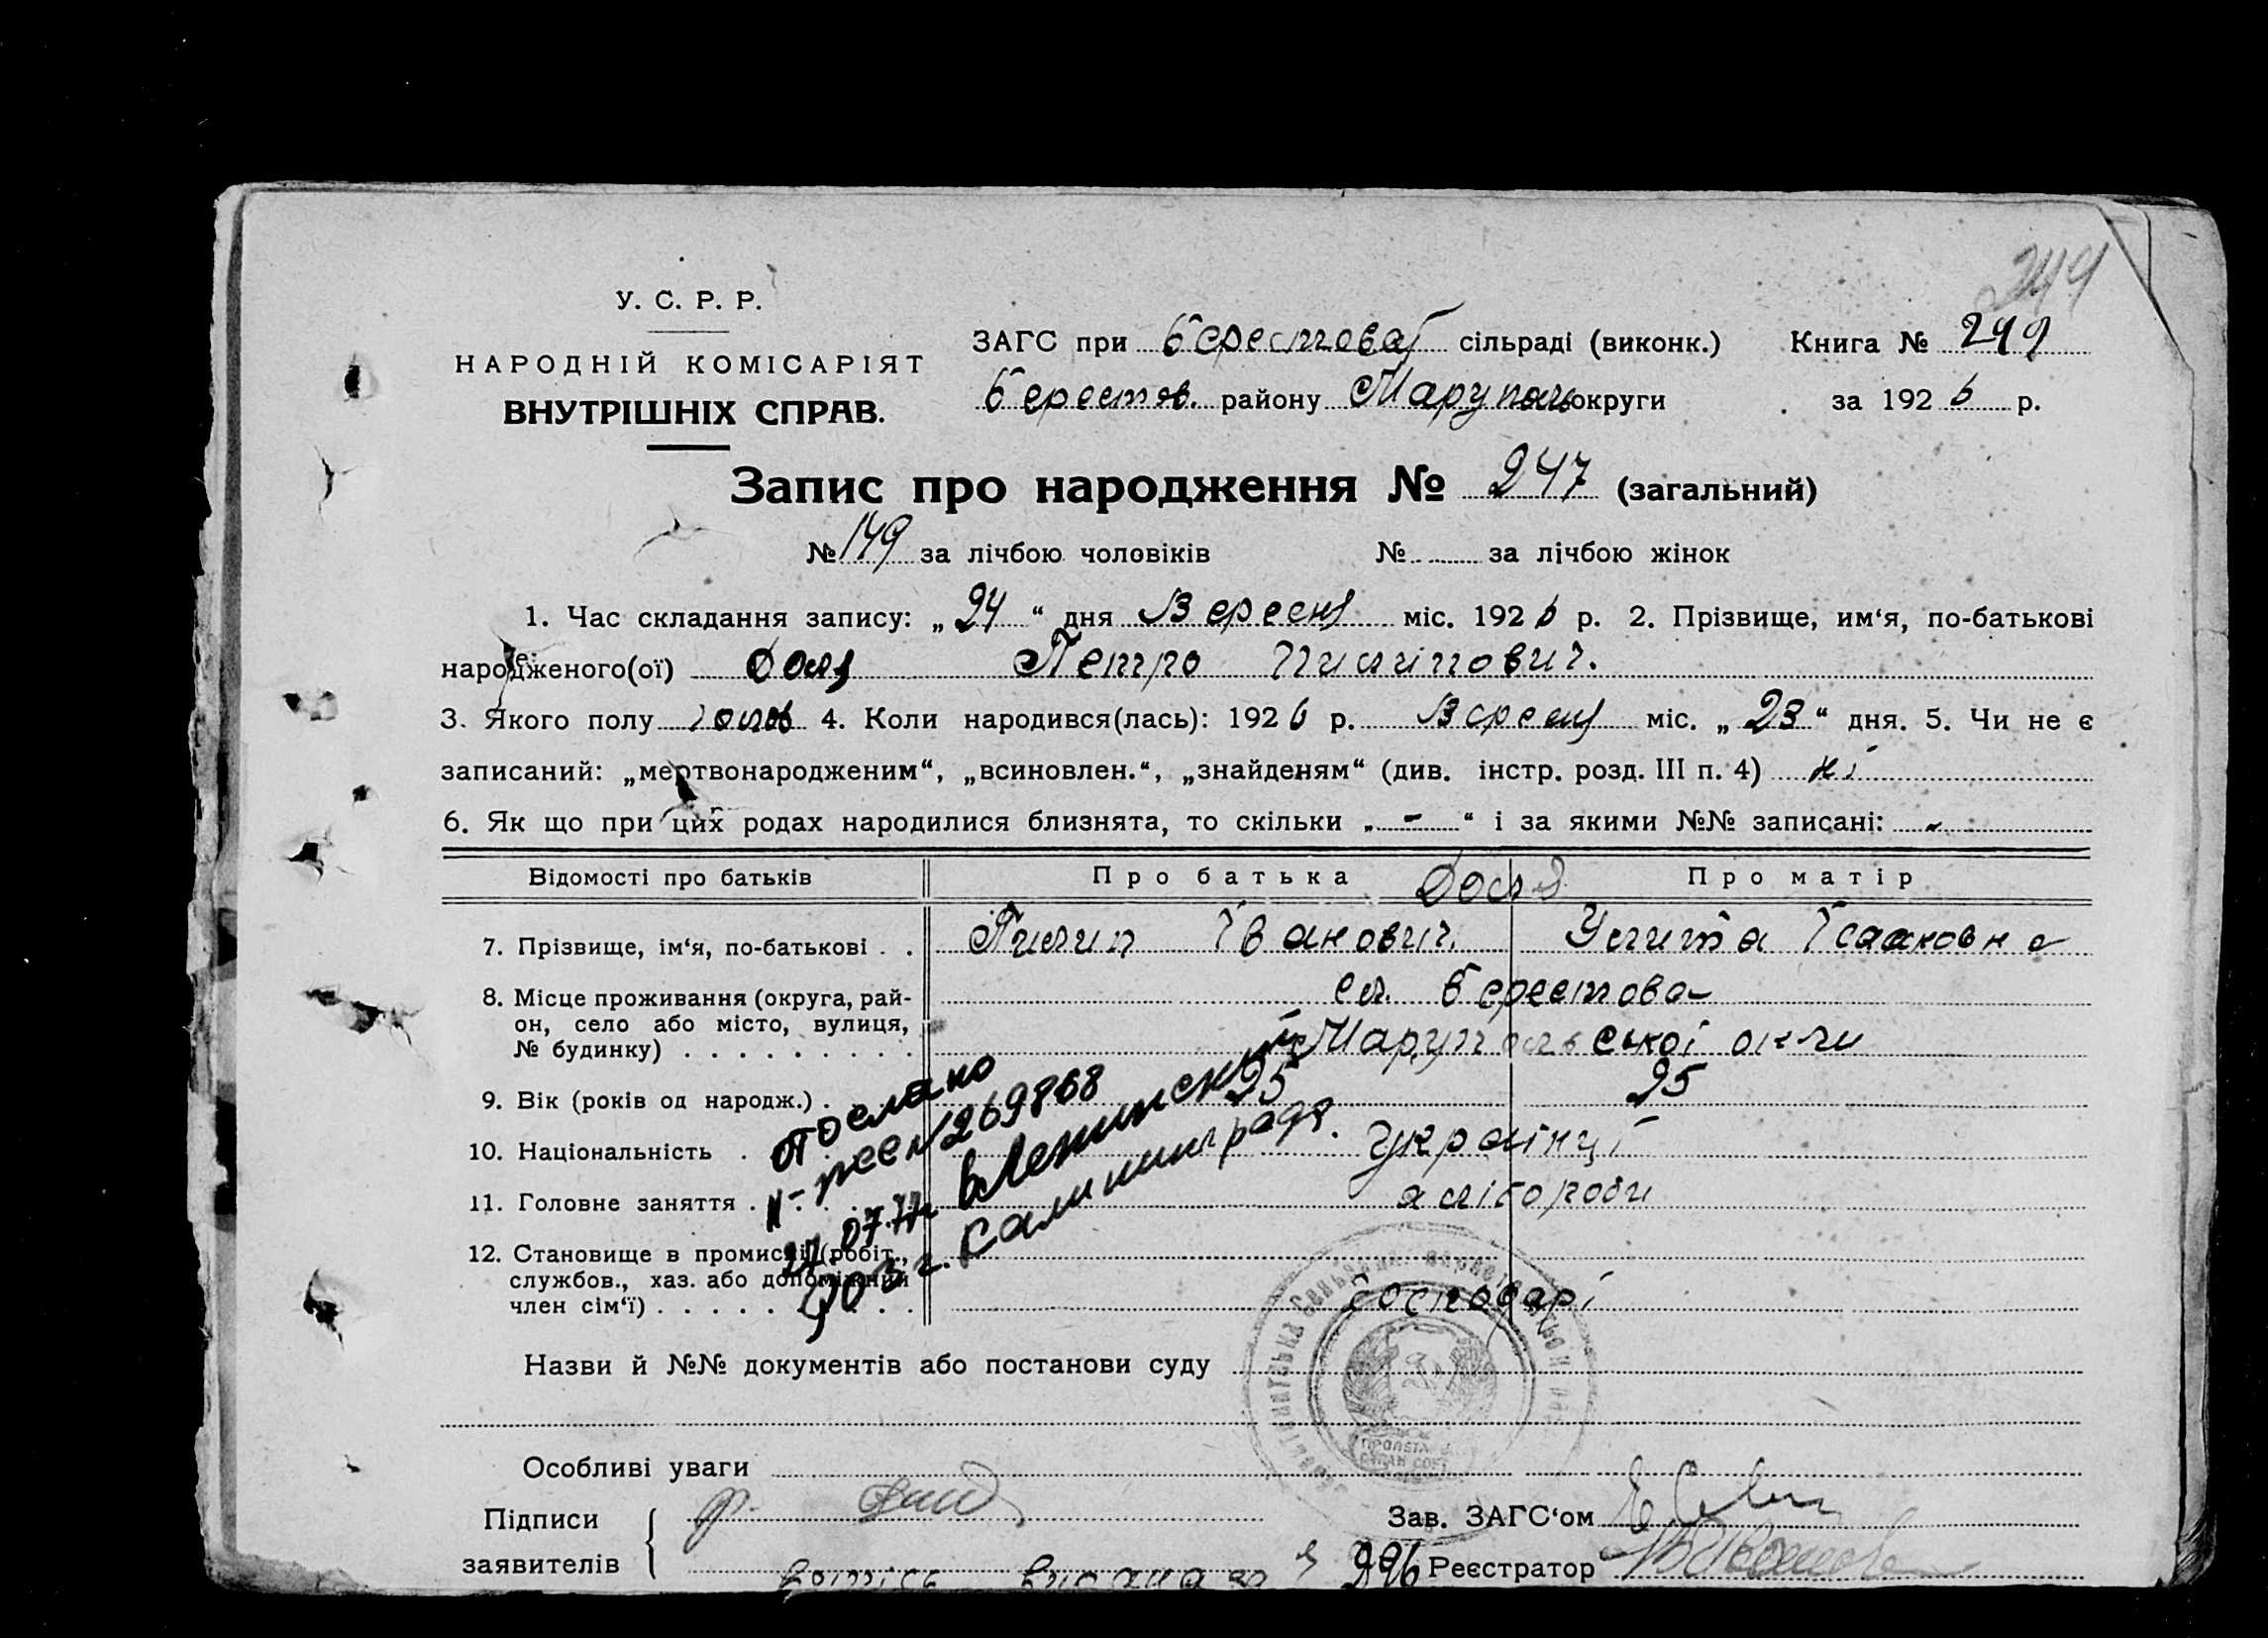 249
У. С. Р. Р.
НАРОДНІЙ КОМІСАРІЯТ
ВНУТРІШНІХ СПРАВ.
ЗАГС при Берестоваї сільраді (виконк.) Книга № 249
Берестов. району Маруполь округи за 1926 р.
Запис про народження № 247 (загальний)
№ 149 за лічбою чоловіків № за лічбою жінок
1. Час складання запису: „24“ дня Вересня міс. 1926 р. 2. Прізвище, им‘я, по-батькові
народженого(ої) Доля Петро Пиліпович.
3. Якого полу чолов 4. Коли народився(лась): 1926 р. Вересня міс. „23“ дня. 5. Чи не є
записаний: „мертвонародженим“, „всиновлен.“, „знайденям“ (див. інстр. розд. III п. 4) ні
6. Як що при цих родах народилися близнята, то скільки „-“ і за якими №№ записані: -
Відомості про батьків Про батька Про матір
Доля
7. Прізвище, ім‘я, по-батькові . . Пилип Іванович. Улита Ісааковна
8. Місце проживання (округа, рай- сл. Берестова
он, село або місто, вулиця,
№ будинку) . . . . . . . . . Марупольської окли
9. Вік (років од народж.) . 25 25
10. Національність . Українці
11. Головне заняття . хлібороби
12. Становище в промислі (робіт.,
службов., хаз. або допоміжний
член сім‘ї) . . . . . . . . . . господарі
послано
н-реен 269868
27 07.77г в Ленинский
роз г. Калининграда.
Назви й №№ документів або постанови суду
Особливі уваги
Підписи
заявителів
Зав. ЗАГС‘ом
296 Реєстратор